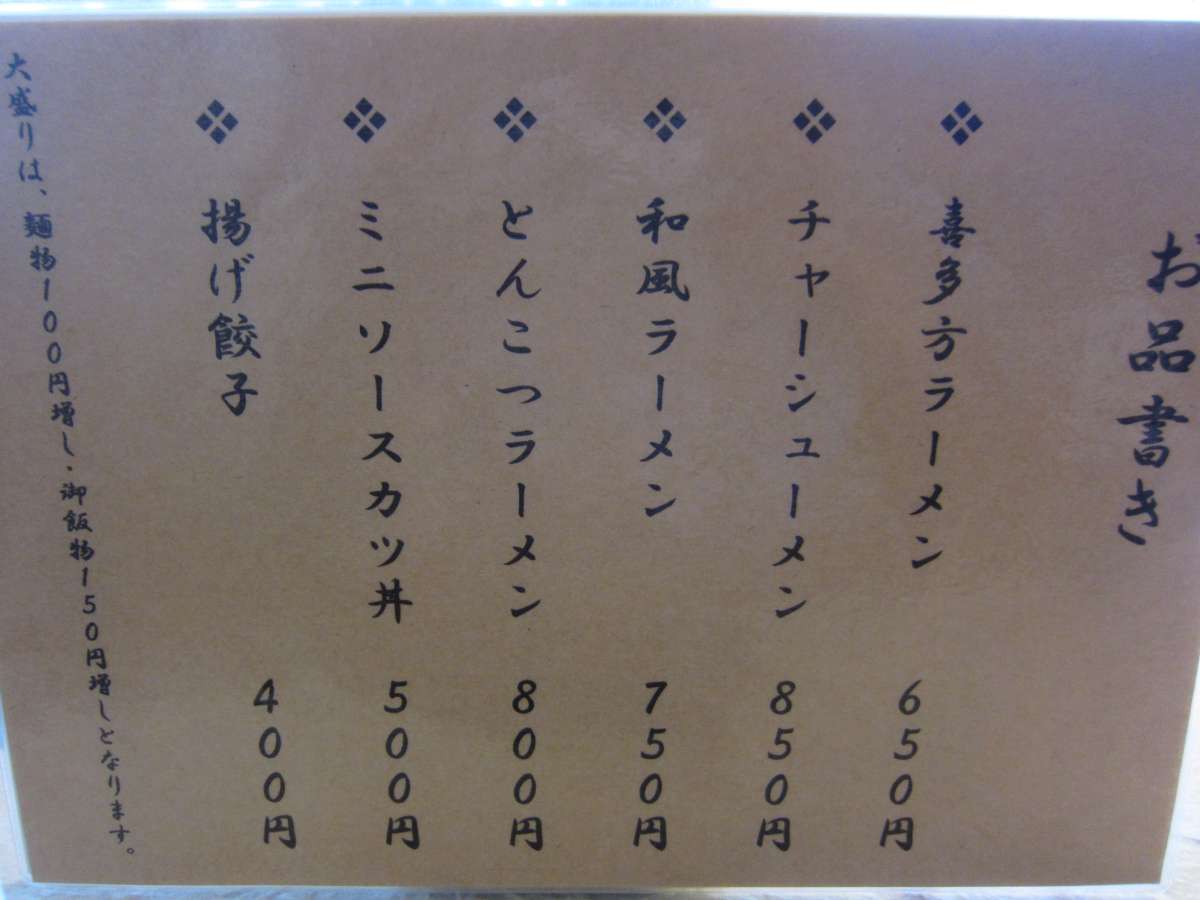 お品書き
❖ 喜多方ラーメン 650円
❖ チャーシューメン 850円
❖ 和風ラーメン 750円
❖ とんこつラーメン 800円
❖ ミニソースカツ丼 500円
❖ 揚げ餃子 400円
大盛りは、麺物100円増し、御飯物150円増しとなります。